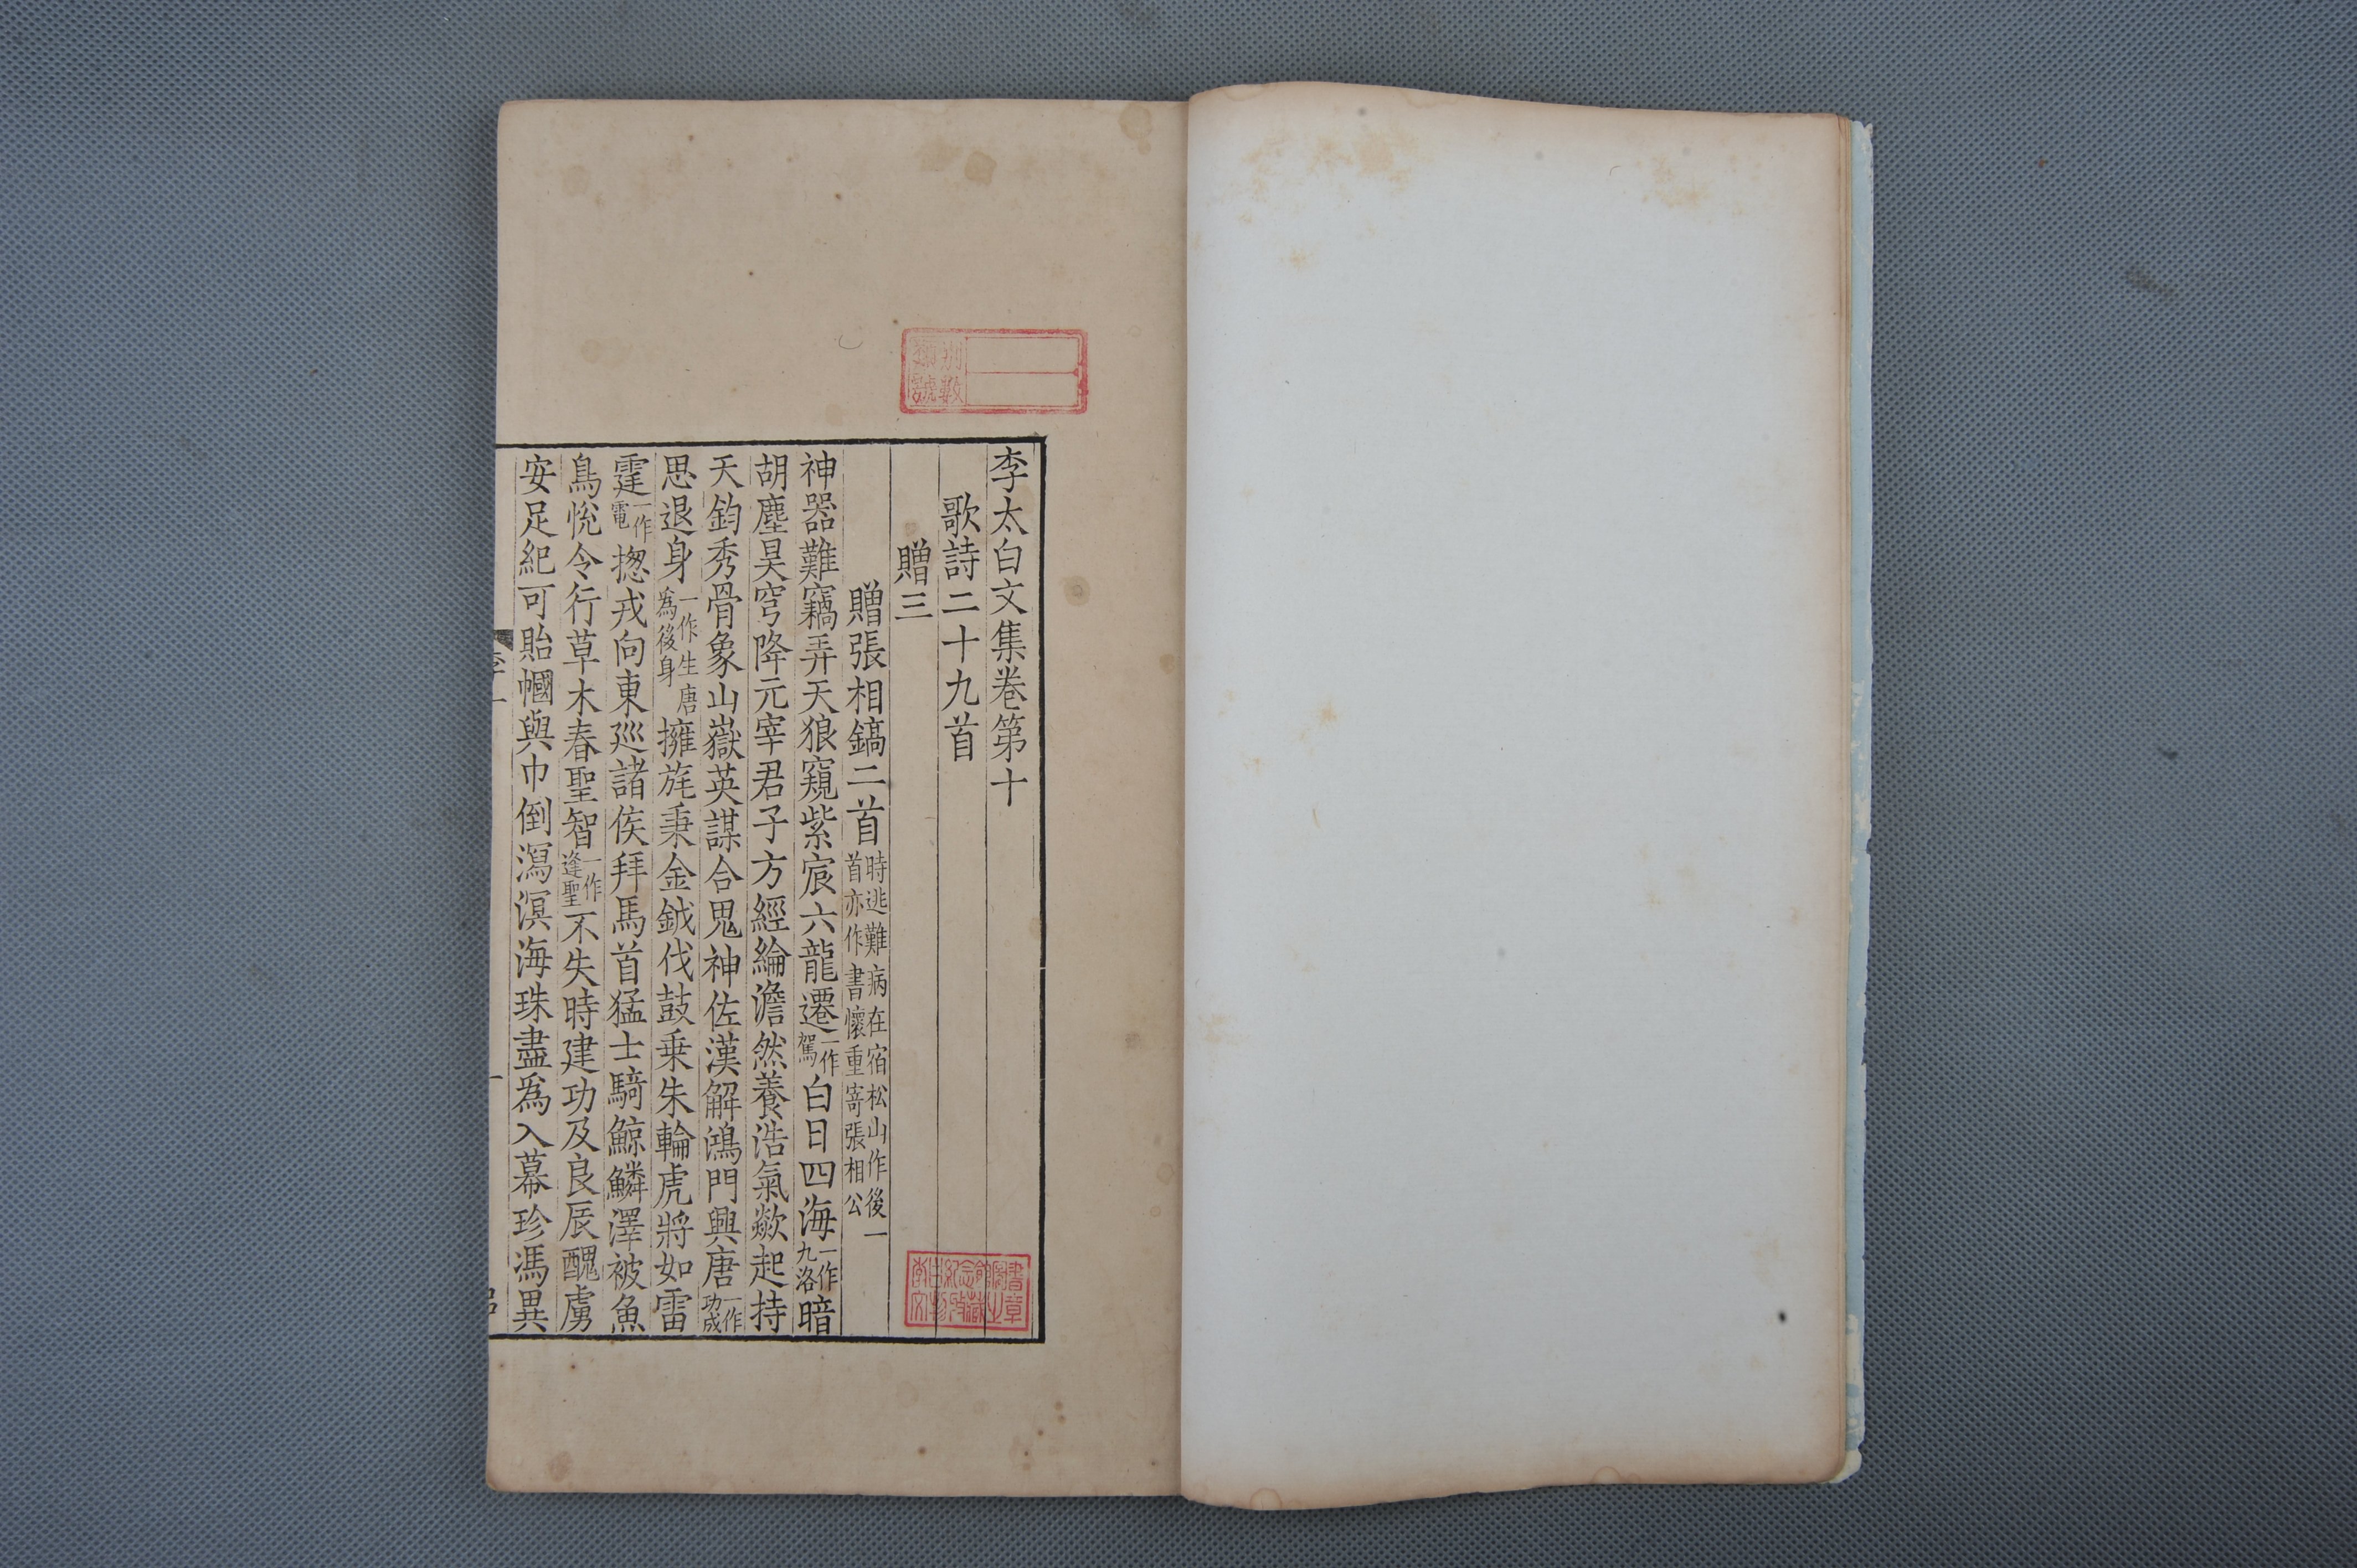 李太白文集卷第十
歌詩二十九首
贈三
贈張相鎬二首時逃難病在宿松山作後一首亦作書懷重寄張相公
神器難竊弄天狼窺紫宸六龍遷一作駕白日四海一作九洛暗
胡塵昊穹降元宰君子方經綸澹然養浩氣歘起持
天鈞秀骨象山嶽英謀合鬼神佐漢解鴻門興唐一作功成
思退身一作生唐為後身擁旄秉金鉞伐鼓乗朱輪虎將如雷
霆一作電揔戎向東巡諸侯拜馬首猛士騎鯨鱗澤被魚
鳥悅令行草木春聖智一作逢聖不失時建功及良辰醜虜
安足紀可貽幗與巾倒瀉溟海珠盡爲入幕珍馮異
別類數號
李白紀念館圖書文物收藏之章